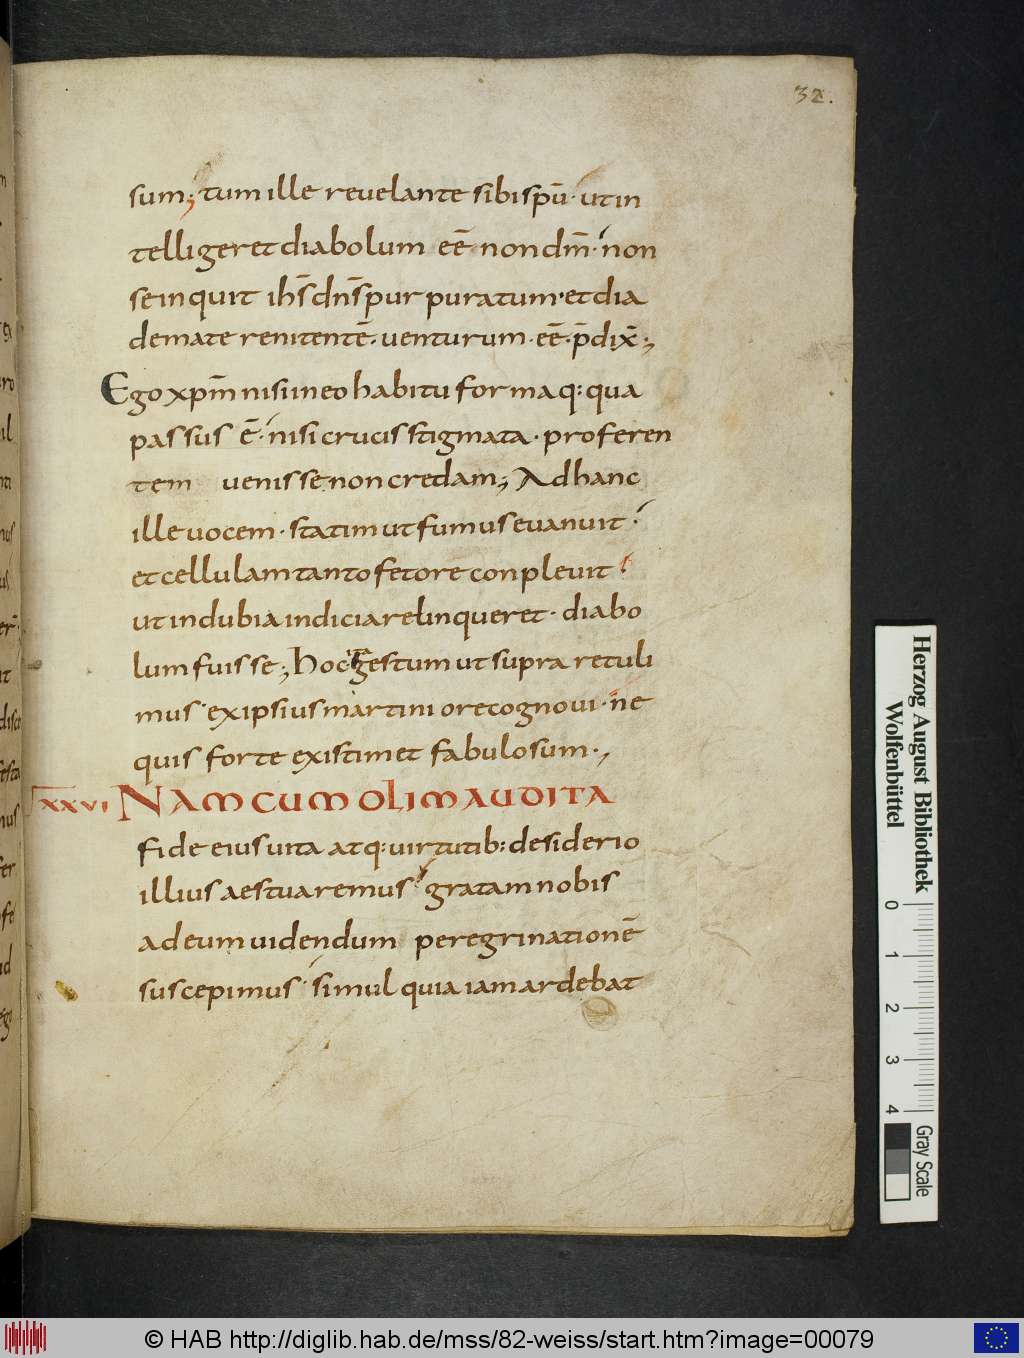 32.
sum; tum ille revelante sibi spū· ut in
telligeret diabolum eē non dm̄· non
se inquit ihs̄ dns̄ purpuratum· et dia
demate renitentē· uenturum· eē· p̄dix̄·;
Ego xpm̄ nisi in eo habitu formaq: qua
passus ē· nisi crucis stigmata· proferen
tem uenisse non credam; Ad hanc
ille uocem· statim ut fumus euanuit·
et cellulam tanto fetore conpleuit·
ut indubia indicia relinqueret· diabo
lum fuisse; hoc ita gestum ut supra retuli
mus· ex ipsius martini ore cognoui· ne
quis forte existimet fabulosum·;
XXVI NAM CUM OLIM AUDITA
fide eius uita atq: uirtutib: desiderio
illius aestuaremus· gratam nobis
ad eum uidendum peregrinationē
suscepimus· simul quia iam ardebat
Herzog August Bibliothek
Wolfenbüttel
0 1 2 3 4
Gray Scale
© HAB http://diglib.hab.de/mss/82-weiss/start.htm?image=00079